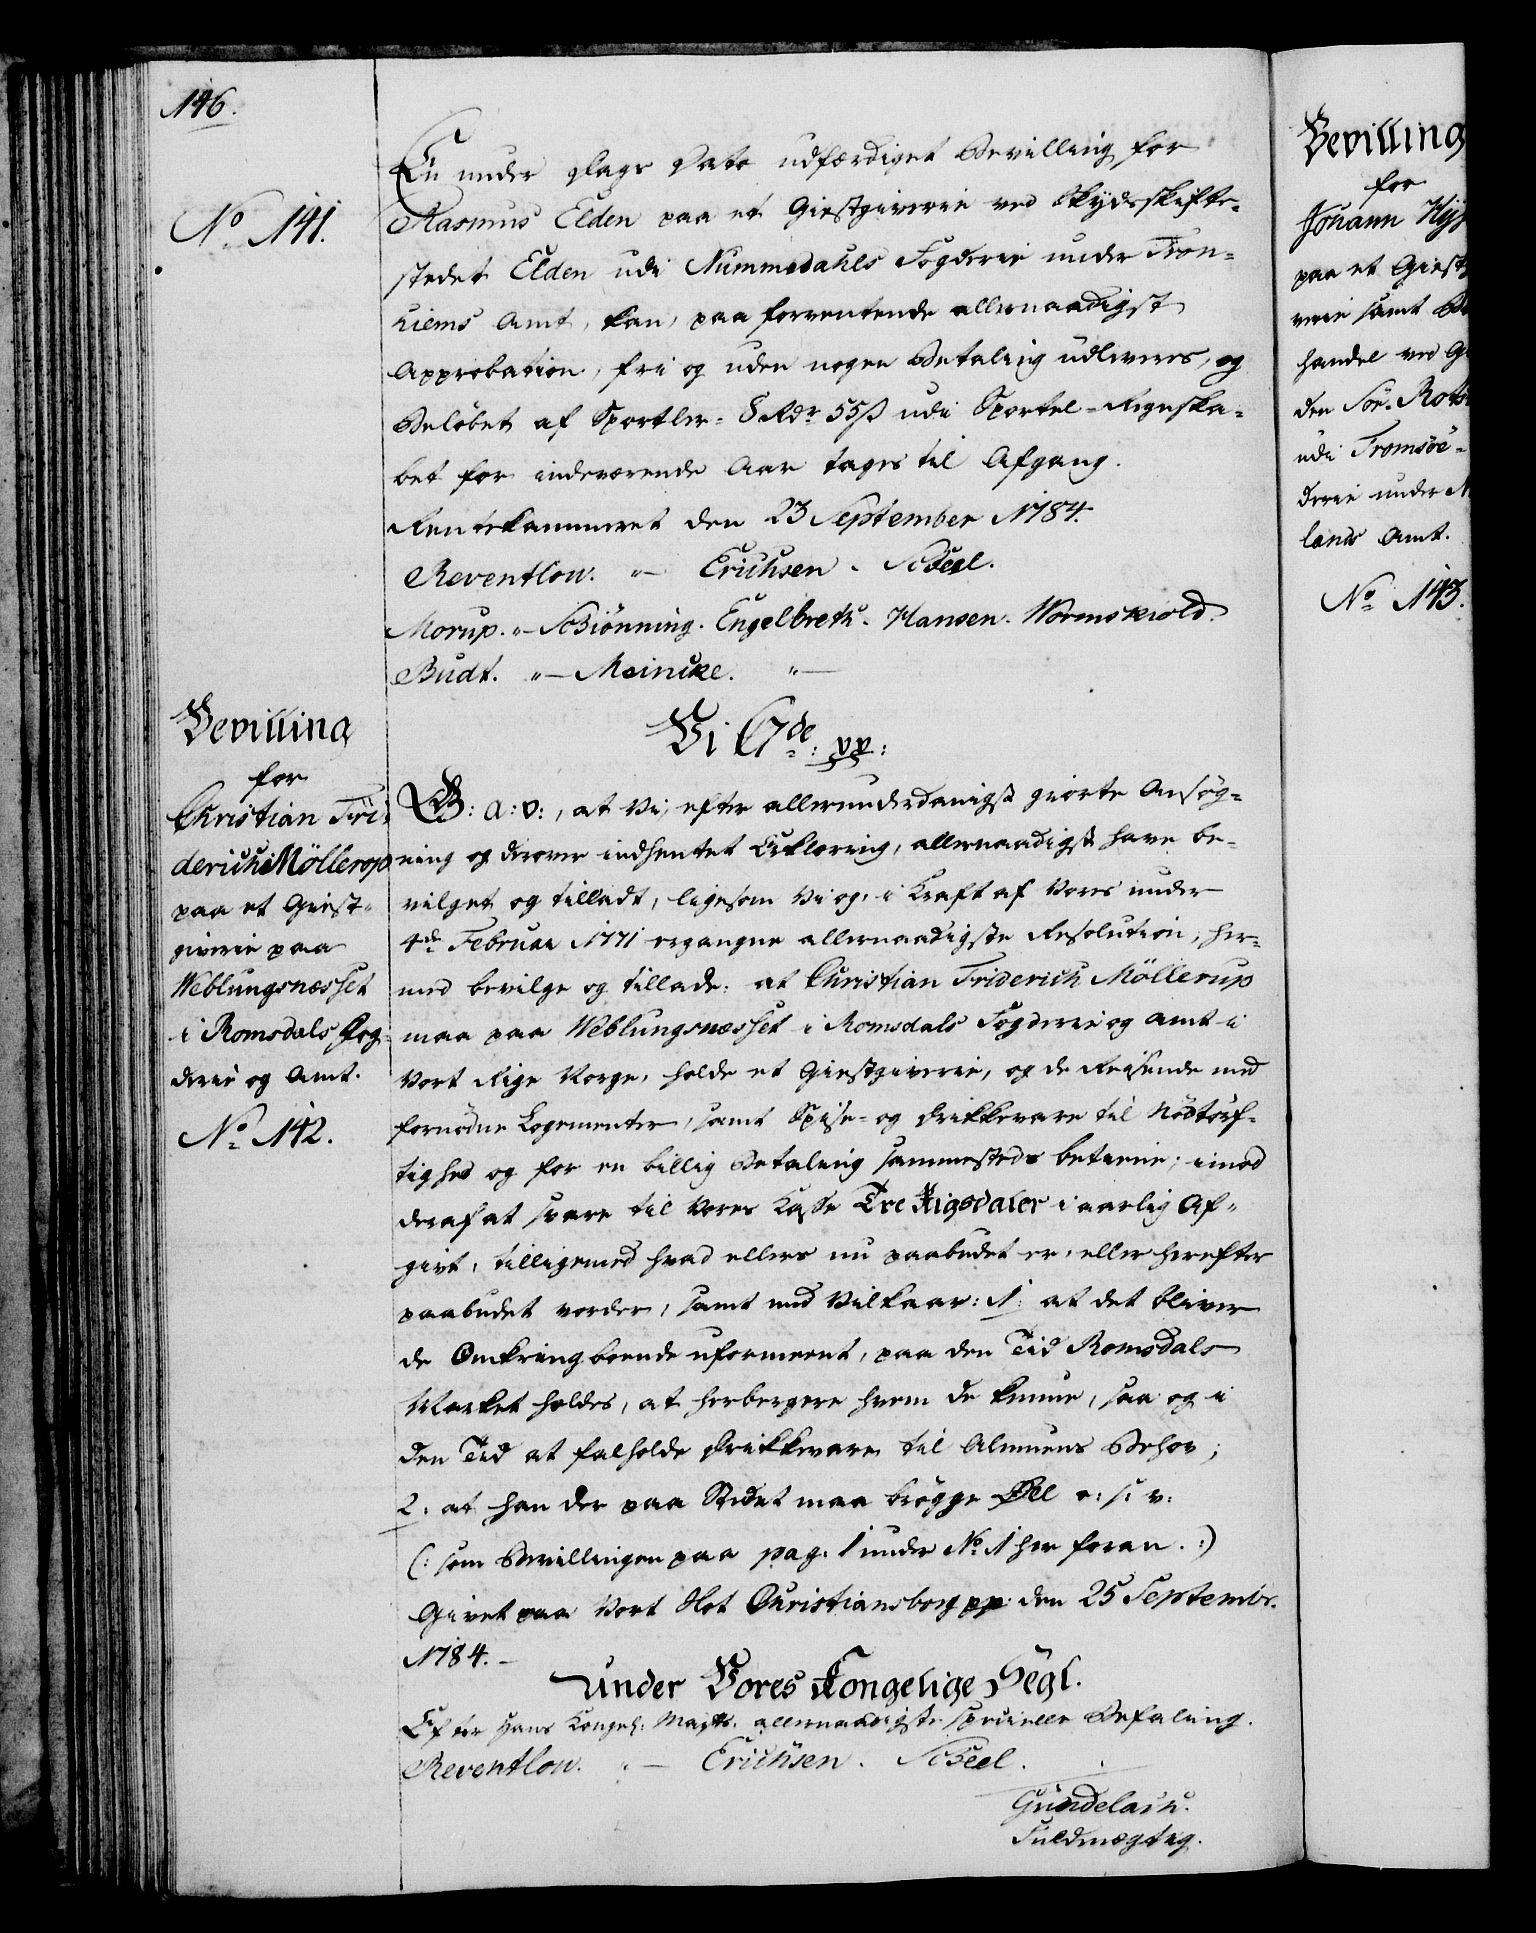 146.
No 141.
En under Dags Dato udfærdiget Bevilling for
Rasmus Elden paa et Giestgiverie ved Skydsskifte-
stedet Elden udi Nummedahls Fogderie under Tron-
hiems Amt, kan, paa forventende allernaadigst
Approbation, fri og uden nogen Betaling udleveres, og
Beløbet af Sportler = 8 Rdr 55 ß udi Sportel-Regnska-
bet for indeværende Aar tages til Afgang.
Rentekammeret den 23 September 1784.
Reventlow. "— Erichsen. Scheel.
Morup. "— Schiønning. Engelbreth. Hansen. Wormskiold.
Budt. "— Meincke. "—
Bevilling
for
Christian Fri-
derich Möllerop
paa et Giest-
giverie paa
Weblungsnæsset
i Romsdals Fog-
derie og Amt.
No 142.
Vi C 7de: pp:
G: A: V:, at Vi, efter allerunderdanigst giorte Ansøg-
ning og derover indhentet Erklæring, allernaadigst have be-
vilget og tilladt, ligesom Vi og, i Kraft af Vores under
4de Februar 1771 ergangne allernaadigste Resolution, her-
med bevilge og tillade: at Christian Friderich Möllerup
maa paa Weblungsnæsset i Romsdals Fogderie og Amt i
Vort Rige Norge, holde et Giestgiverie, og de Reisende med
fornødne Logementer, samt Spise- og Drikkevare til Nødtørf-
tighed og for en billig Betaling sammesteds betiene; imod
deraf at svare til Vores Kasse Tre Rigsdaler i aarlig Af-
givt, tilligemed hvad ellers nu paabudet er, eller herefter
paabudet vorder, samt med Vilkaar: 1: at det bliver
de Omkringboende uformeent, paa den Tid Romsdals
Market holdes, at herbergere hvem de kunne, saa og i
den Tid at falholde Drikkevare til Almuens Behov;
2: at han der paa Stedet maa brøgge Øll o: s: v:
(: som Bevillingen paa pag. 1 under No 1 her foran. :)
Givet paa Vort Slot Christiansborg pp: den 25 Septembr.
1784. —
under Vores Kongelige Segl.
Efter Hans Kongel: Majts. allernaadigste specielle Befaling.
Reventlow. "— Erichsen. Scheel.
Gundelach.
Fuldmægtig.
Bevilling
for
Johann
paa et Giestg
verie samt
handel ved
den Søe-
udi Tromsöe-
derie under
lands Amt.
No 143.